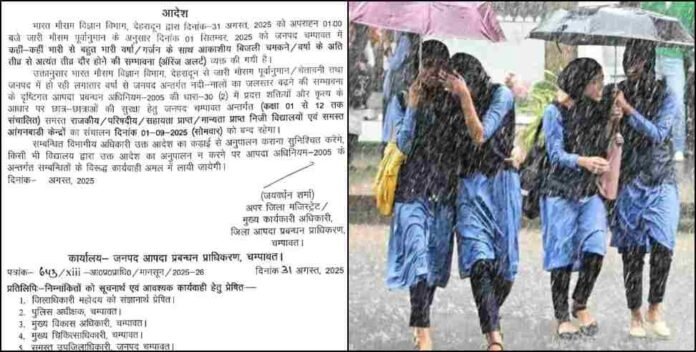 आदेश
भारत मौसम विज्ञान विभाग, देहरादून द्वारा दिनांक-31 अगस्त, 2025 को अपरान्ह 01:00
बजे जारी मौसम पूर्वानुमान के अनुसार दिनांक 01 सितम्बर, 2025 को जनपद चम्पावत में
कहीं-कहीं भारी से बहुत भारी वर्षा/गर्जन के साथ आकाशीय बिजली चमकने/वर्षा के अति
तीव्र से अत्यंत तीव्र दौर होने की सम्भावना (ऑरेंज अलर्ट) व्यक्त की गयी है।
उक्तानुसार भारत मौसम विज्ञान विभाग, देहरादून से जारी मौसम पूर्वानुमान/चेतावनी तथा
जनपद में हो रही लगातार वर्षा से जनपद अन्तर्गत नदी-नालों का जलस्तर बढ़ने की सम्भावना
के दृष्टिगत आपदा प्रबन्धन अधिनियम-2005 की धारा-30 (2) में प्रदत्त शक्तियों और कृत्य के
आधार पर छात्र-छात्राओं की सुरक्षा हेतु जनपद चम्पावत अन्तर्गत (कक्षा 01 से 12 तक
संचालित) समस्त राजकीय/परिषदीय/सहायता प्राप्त/मान्यता प्राप्त निजी विद्यालयों एवं समस्त
आंगनबाडी केन्द्रों का संचालन दिनांक 01-09-2025 (सोमवार) को बन्द रहेगा।
सम्बन्धित विभागीय अधिकारी उक्त आदेश का कड़ाई से अनुपालन कराना सुनिश्चित करेंगे,
किसी भी विद्यालय द्वारा उक्त आदेश का अनुपालन न करने पर आपदा अधिनियम-2005 के
अन्तर्गत सम्बन्धितों के विरूद्ध कार्यवाही अमल में लायी जायेगी।
दिनांक- अगस्त, 2025
(जयवर्धन शर्मा)
अपर जिला मजिस्ट्रेट/
मुख्य कार्यकारी अधिकारी,
जिला आपदा प्रबन्धन प्राधिकरण,
चम्पावत।
कार्यालय- जनपद आपदा प्रबन्धन प्राधिकरण, चम्पावत।
पत्रांक- 643/xiii -आ०प्र०प्राधि०/मानसून/2025-26 दिनांक 31 अगस्त, 2025
प्रतिलिपिः-निम्नांकितों को सूचनार्थ एवं आवश्यक कार्यवाही हेतु प्रेषित-
1. जिलाधिकारी महोदय को संज्ञानार्थ प्रेषित।
2. पुलिस अधीक्षक, चम्पावत।
3. मुख्य विकास अधिकारी, चम्पावत।
4. मुख्य चिकित्साधिकारी, चम्पावत।
5. समस्त उपजिलाधिकारी, जनपद चम्पावत।